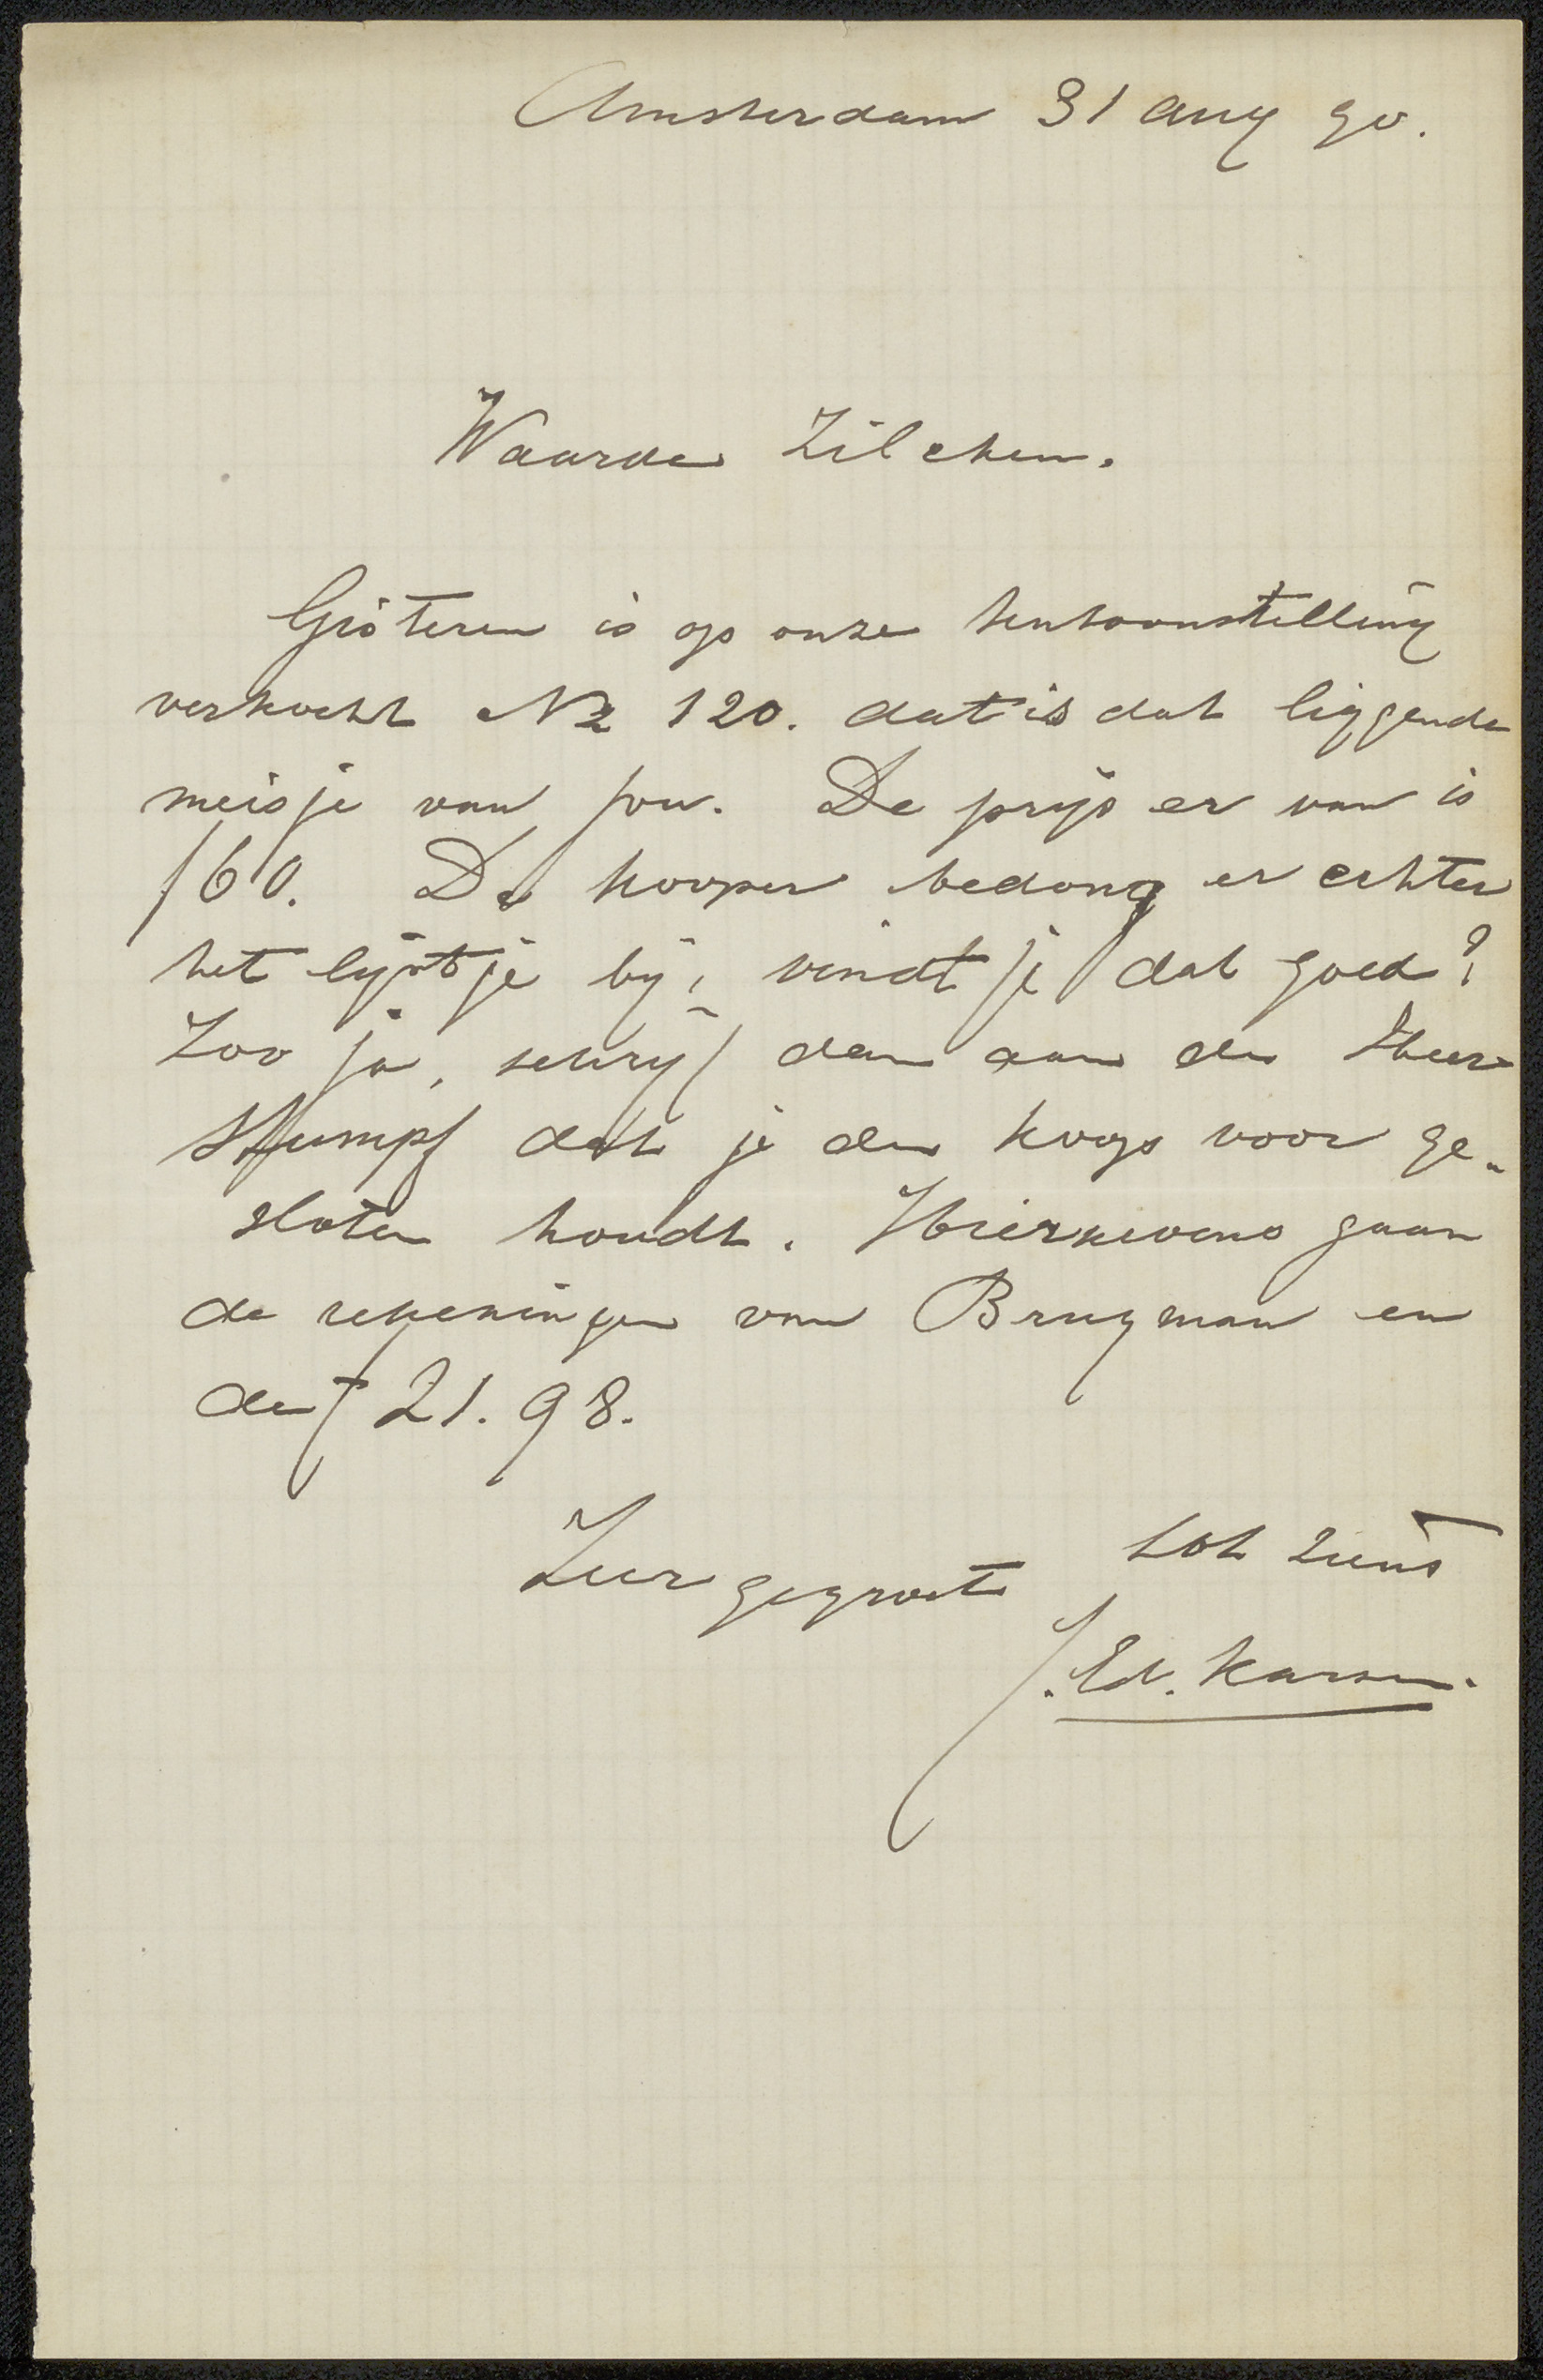 Amsterdam 31 aug 90.
Waarde Zilcken.
Gisteren is op onze tentoonstelling
verkocht No 120. dat is dat liggende
meisje van jou. De prijs er van is
f 60. De kooper bedong er echter
het lijstje bij, vindt je dat goed?
Zoo ja, schrijf dan aan den Heer
Stumpf dat je den koop voor ge-
sloten houdt. Hiernevens gaan
de rekeningen van Brugman en
de f 21.98.
tot ziens
Zeer gegroet
J. Ed. Karsen.